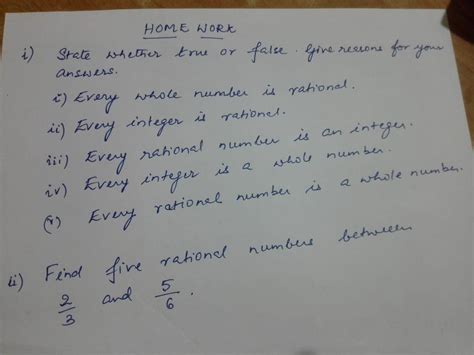 HOME WORK
i) State whether true or false. Give reasons for your
answers.
i) Every whole number is rational.
ii) Every integer is rational.
iii) Every rational number is an integer.
iv) Every integer is a whole number.
(v) Every rational number is a whole number.
ii) Find five rational numbers between
2/3 and 5/6.